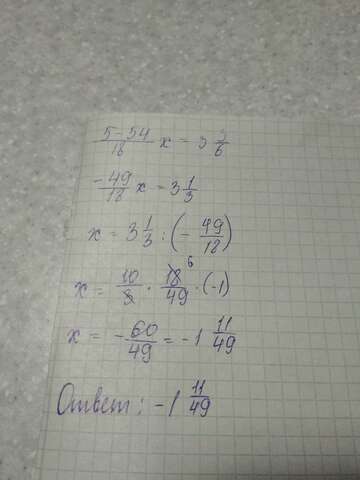 5-54/18 x = 3 2/6
-49/18 x = 3 1/3
x = 3 1/3 : (- 49/18)
x = 10/3 · 18/49 · (-1) 6
x = - 60/49 = -1 11/49
Ответ: -1 11/49